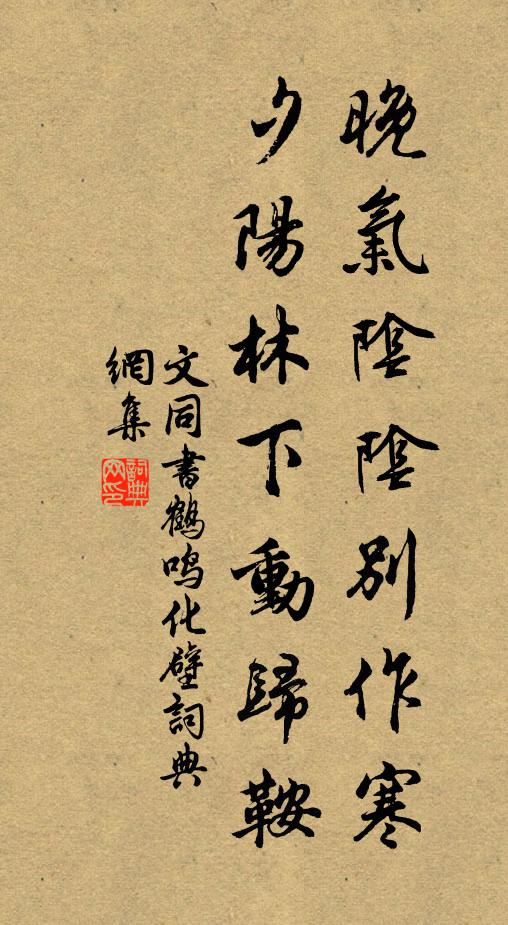 晚氣陰陰別作寒
夕陽林下動歸鞍
文同書鶴鳴化壁詞典
網集
詞典
网印